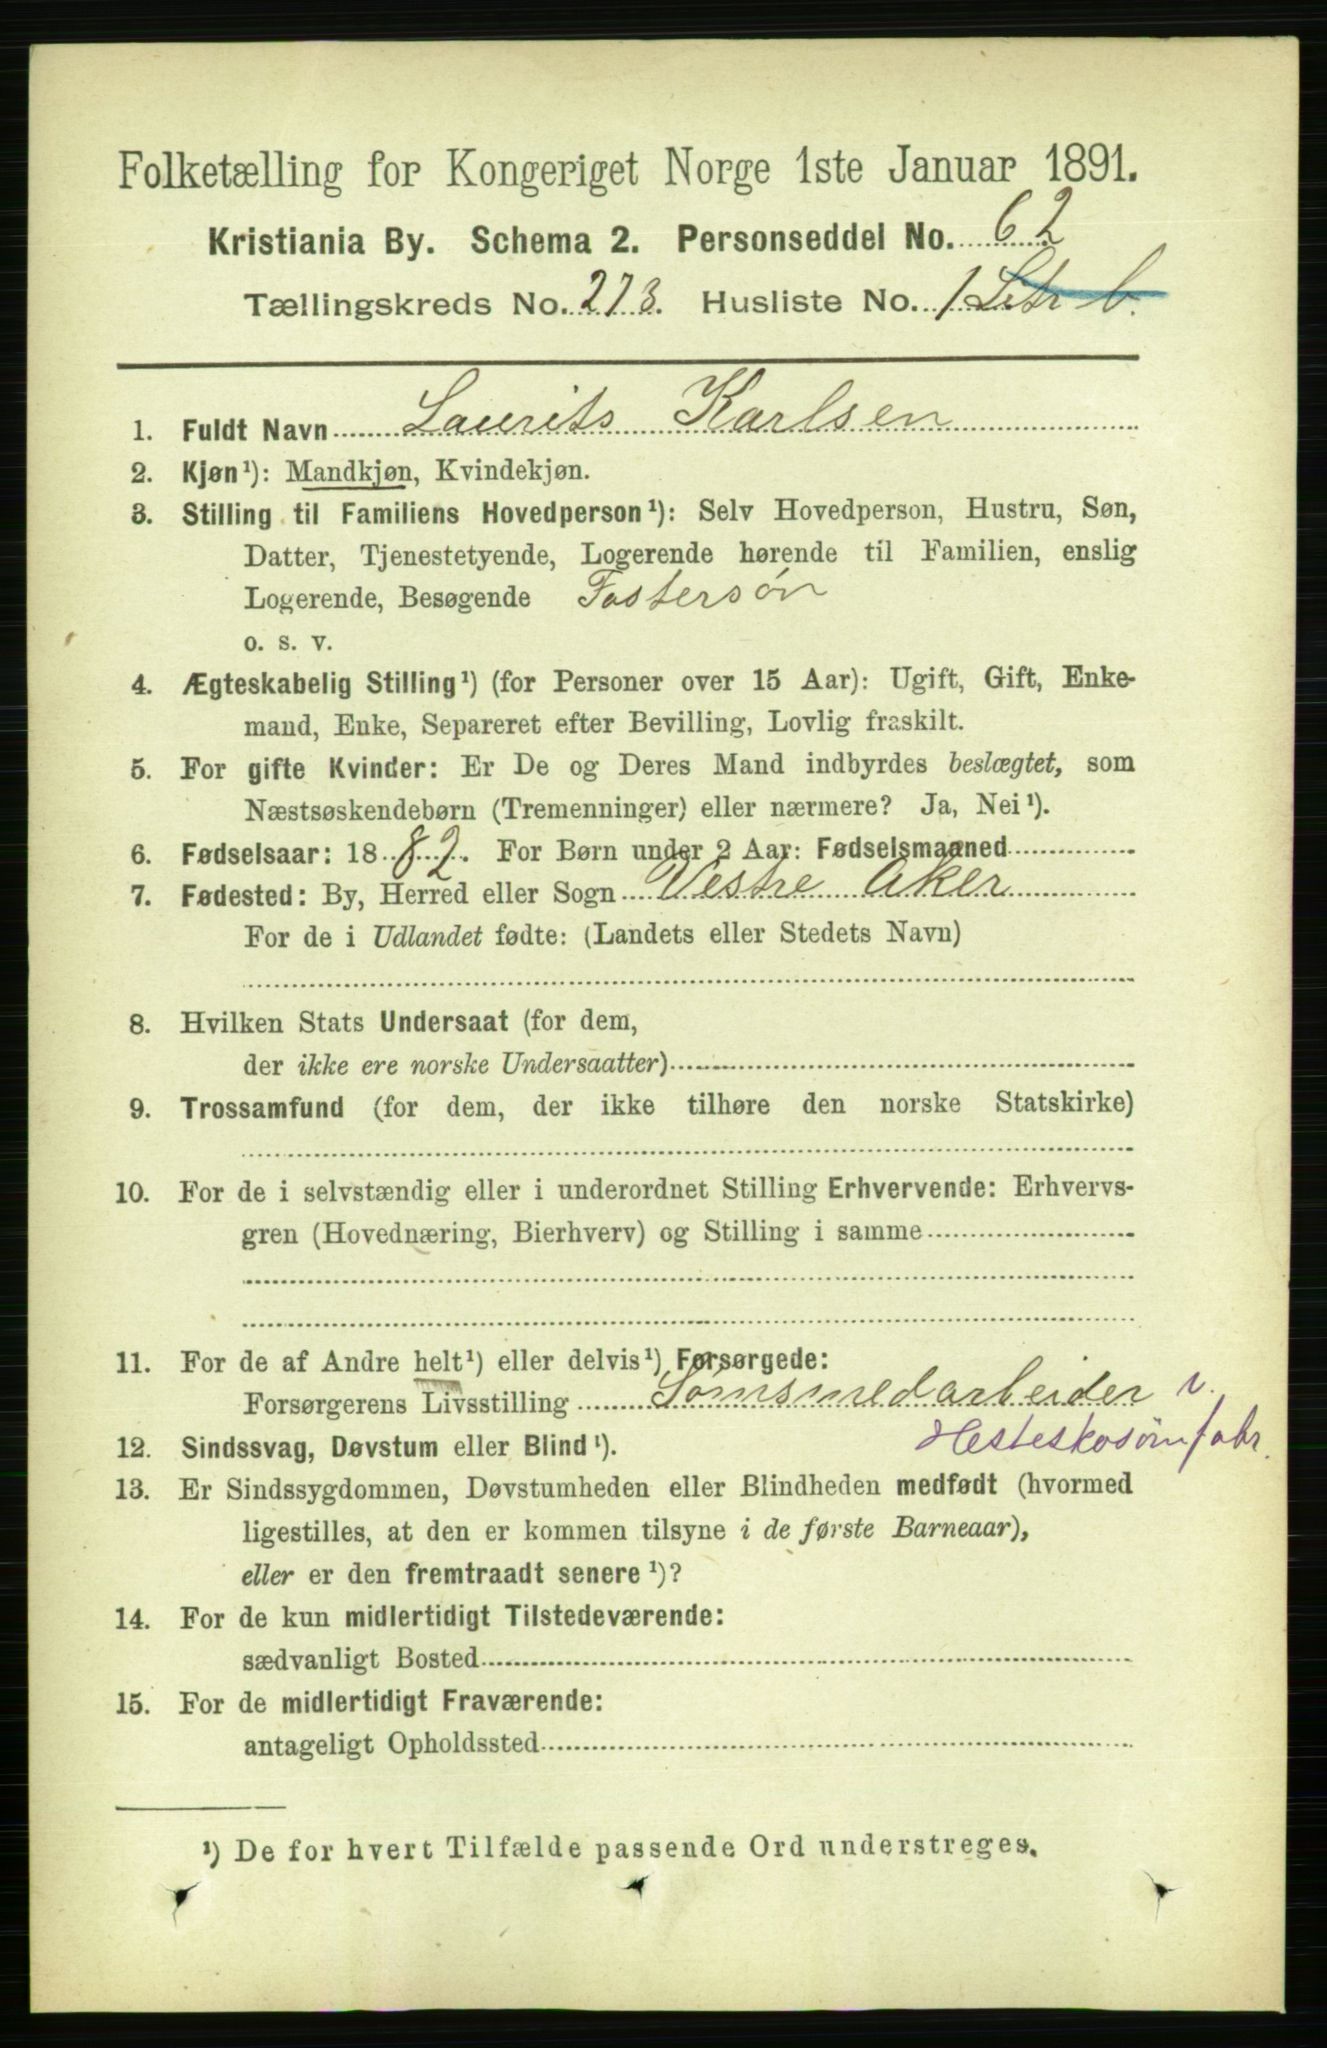 Folketælling for Kongeriget Norge 1ste Januar 1891.
Kristiania By. Schema 2. Personseddel No. 62
Tællingskreds No. 273. Husliste No. 1 Litr b.
1. Fuldt Navn Laurits Karlsen
2. Kjøn¹): Mandkjøn, Kvindekjøn.
3. Stilling til Familiens Hovedperson¹): Selv Hovedperson, Hustru, Søn,
Datter, Tjenestetyende, Logerende hørende til Familien, enslig
Logerende, Besøgende Fostersøn
o. s. v.
4. Ægteskabelig Stilling¹) (for Personer over 15 Aar): Ugift, Gift, Enke-
mand, Enke, Separeret efter Bevilling, Lovlig fraskilt.
5. For gifte Kvinder: Er De og Deres Mand indbyrdes beslægtet, som
Næstsøskendebørn (Tremenninger) eller nærmere? Ja, Nei¹).
6. Fødselsaar: 1882. For Børn under 2 Aar: Fødselsmaaned
7. Fødested: By, Herred eller Sogn Vestre Aker
For de i Udlandet fødte: (Landets eller Stedets Navn)
8. Hvilken Stats Undersaat (for dem,
der ikke ere norske Undersaatter)
9. Trossamfund (for dem, der ikke tilhøre den norske Statskirke)
10. For de i selvstændig eller i underordnet Stilling Erhvervende: Erhvervs-
gren (Hovednæring, Bierhverv) og Stilling i samme
11. For de af Andre helt¹) eller delvis¹) Forsørgede:
Forsørgerens Livsstilling Sømsmedarbeider v.
Hesteskosømfabr.
12. Sindssvag, Døvstum eller Blind¹).
13. Er Sindssygdommen, Døvstumheden eller Blindheden medfødt (hvormed
ligestilles, at den er kommen tilsyne i de første Barneaar),
eller er den fremtraadt senere¹)?
14. For de kun midlertidigt Tilstedeværende:
sædvanligt Bosted
15. For de midlertidigt Fraværende:
antageligt Opholdssted
¹) De for hvert Tilfælde passende Ord understreges.